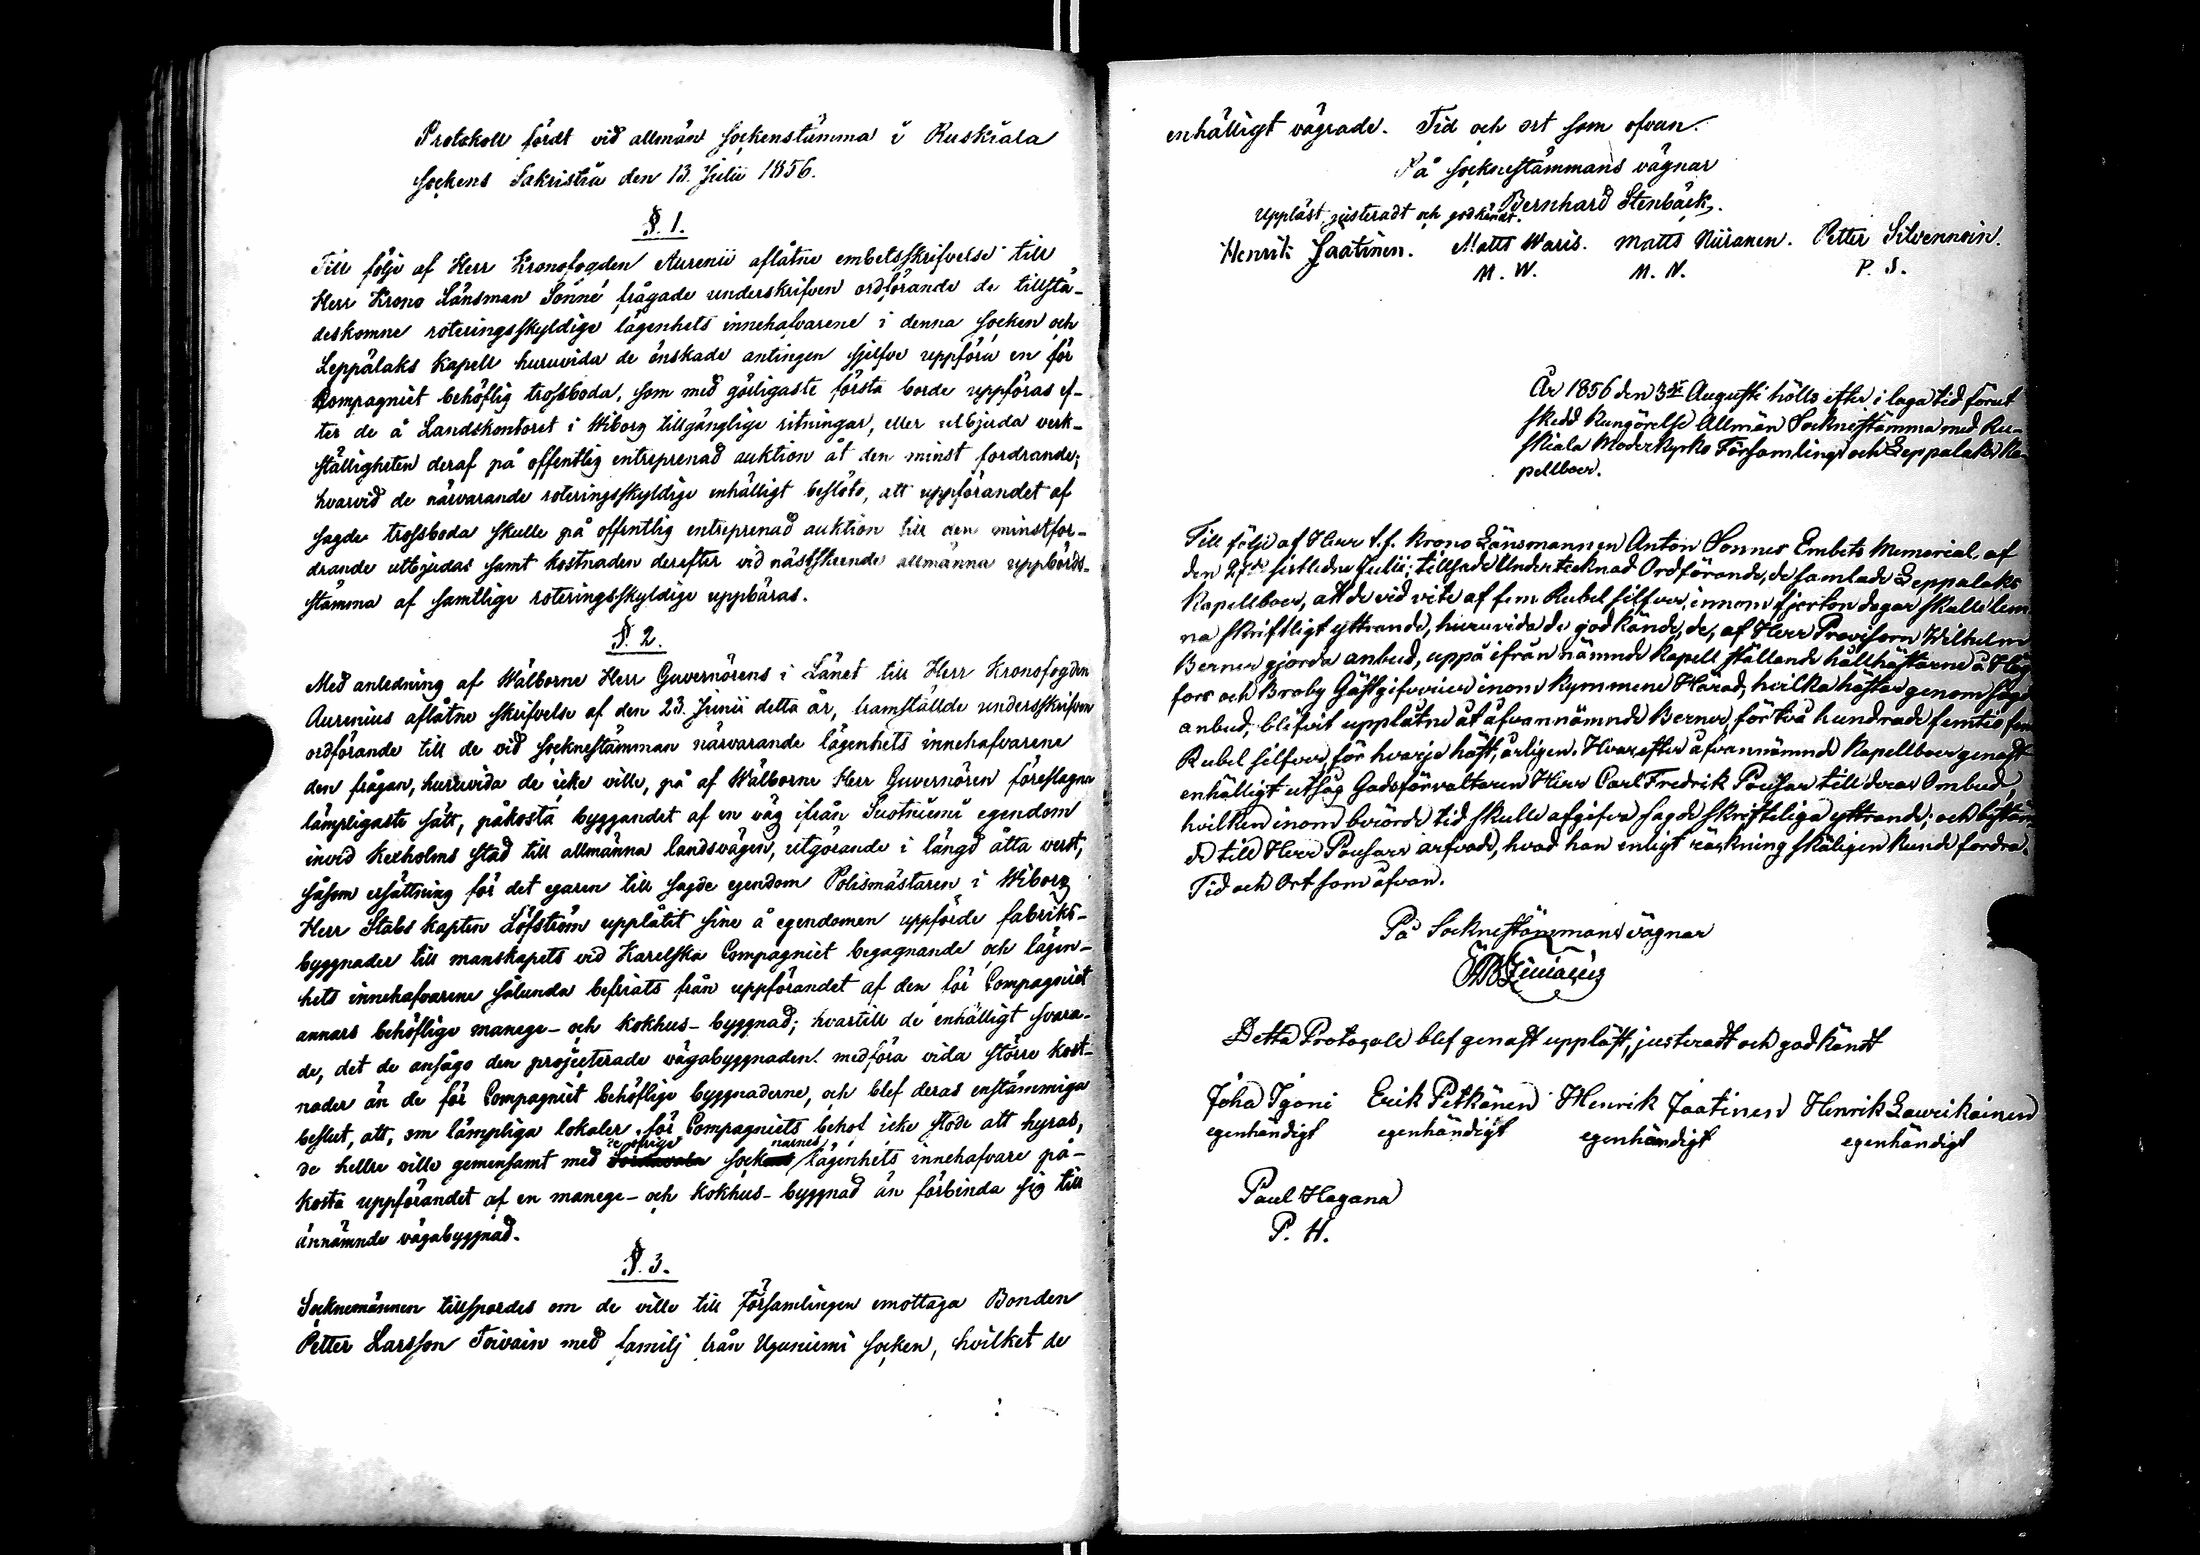 Protokoll fördt vid allmän Sockenstämma i Ruskiala
Sockens Sakristia den 13. Julii 1856.
§. 1.
Till följe af Herr Kronofogden Aurenii aflåtne embetsskrifvelse till
Herr Krono Länsman Sonné frågade underskrifven ordförande de tillstä-
deskomne roteringsskyldige lägenhets innehafvarene i denna Socken och
Leppälaks Kapell huruvida de önskade antingen sjelfve uppföra en för
Compagniet behöflig trossboda, som med görligaste första borde uppföras ef-
ter de å Landskontoret i Wiborg tillgänglige ritningar, eller utbjuda verk-
ställigheten deraf på offentlig entreprenad auktion åt den minst fordrande;
hvarvid de närvarande roteringsskyldige enhälligt beslöto, att uppförandet af
sagde trossboda skulle på offentlig entreprenad auktion till den minstfor-
drande utbjudas samt kostnaden derefter vid nästskeende allmänna uppbörds-
stämma af samtlige roteringsskyldige uppbäras.
§. 2.
Med anledning af Wälborne Herr Guvernörens i Länet till Herr Kronofogden
Aurenius aflåtne skrifvelse af den 23. Junii detta år, framställde underskrifven
ordförande till de vid Socknestämman närvarande lägenhets innehafvarene
den frågan, huruvida de icke ville, på af Wälborne Herr Guvernören föreslagne
lämpligaste sätt, påkosta byggandet af en väg ifrån Suotniemi egendom
invid Kexholms stad till allmänna landsvägen, utgörande i längd åtta verst,
såsom ersättning för det egaren till sagde egendom Polismästaren i Wiborg
Herr Stabs kapten Löfström upplåtit sine å egendomen uppförde fabriks-
byggnader till manskapets vid Karelska Compagniet begagnande och lägen-
hets innehafvarene sålunda befriats från uppförandet af den för Compagniet
annars behöflige manege- och kokhus- byggnad; hvartill de enhälligt svara-
de, det de ansågo den projecterade vägabyggnaden medföra vida större kost-
nader än de för Compagniet behöflige byggnaderne, och blef deras enstämmiga
beslut, att, om lämpliga lokaler för Compagniets behof icke stode att hyras,
de hellre ville gemensamt med öfrige Sordavala sock narnes lägenhets innehafvare på-
kosta uppförandet af en manege- och kokhus- byggnad än förbinda sig till
ännämnde vägabyggnad.
§. 3.
Socknemännen tillspordes om de ville till Församlingen emottaga Bonden
Petter Larsson Toivain med familj från Uguniemi Socken, hvilket de
enhälligt vägrade. Tid och ort som ofvan.
På Socknestämmans vägnar
Bernhard Stenbäck.
Uppläst, justeradt och godkändt.
Henrik Jaatinen. Matts Waris. Matts Niiranen. Petter Silvennoin.
M. W. M. N. P. S.
År 1856 den 3de Augusti hölls efter i laga tid förut
skedd Kungörelse Allmän Socknestämma med Ru-
skiala Moderkyrko Församlings och Leppalaks Ka-
pellboer.
Till följe af Herr t.f. Krono Länsmannen Anton Sonnes Embets Memorial af
den 27de sistledne Julii; tillsade Undertecknad Ordförande, de samlade Leppalaks
Kapellboer, att de vid vite af fem Rubel silfver, innom fjorton dagar skulle lem-
na skriftligt yttrande, huruvida de godkände, de, af Herr Provisorn Wilhelm
Berner gjorda anbud, uppå ifrån nämnde Kapell ställande hållhästarne å Hög
fors och Broby Gästgifverier inom Kymmene Härad, hvilka hästar genom
anbud, blifvit upplåtne åt äfvannämnde Berner, för två hundrade femtio fem
Rubel silfver, för hvarje häst, årligen. Hvarefter äfvannämnde Kapellboer genast
enhälligt utsåg Godsförvaltaren Herr Carl Fredrik Pousar till deras Ombud,
hvilken inom berörde tid skulle afgifva sagde skrifteliga yttrande; och bestäm-
de till Herr Pousars arfvode, hvad han enligt räkning skäligen kunde fordra.
Tid och Ort som åfvan.
På Socknestämmans vägnar
Detta Protocoll blef genast uppläst, justeradt och godkändt
Joha Igoni Erik Petkänen Henrik Jaatinen Henrik Laurikainen
egenhändigt egenhändigt egenhändigt egenhändigt
Paul Hagana
P. H.